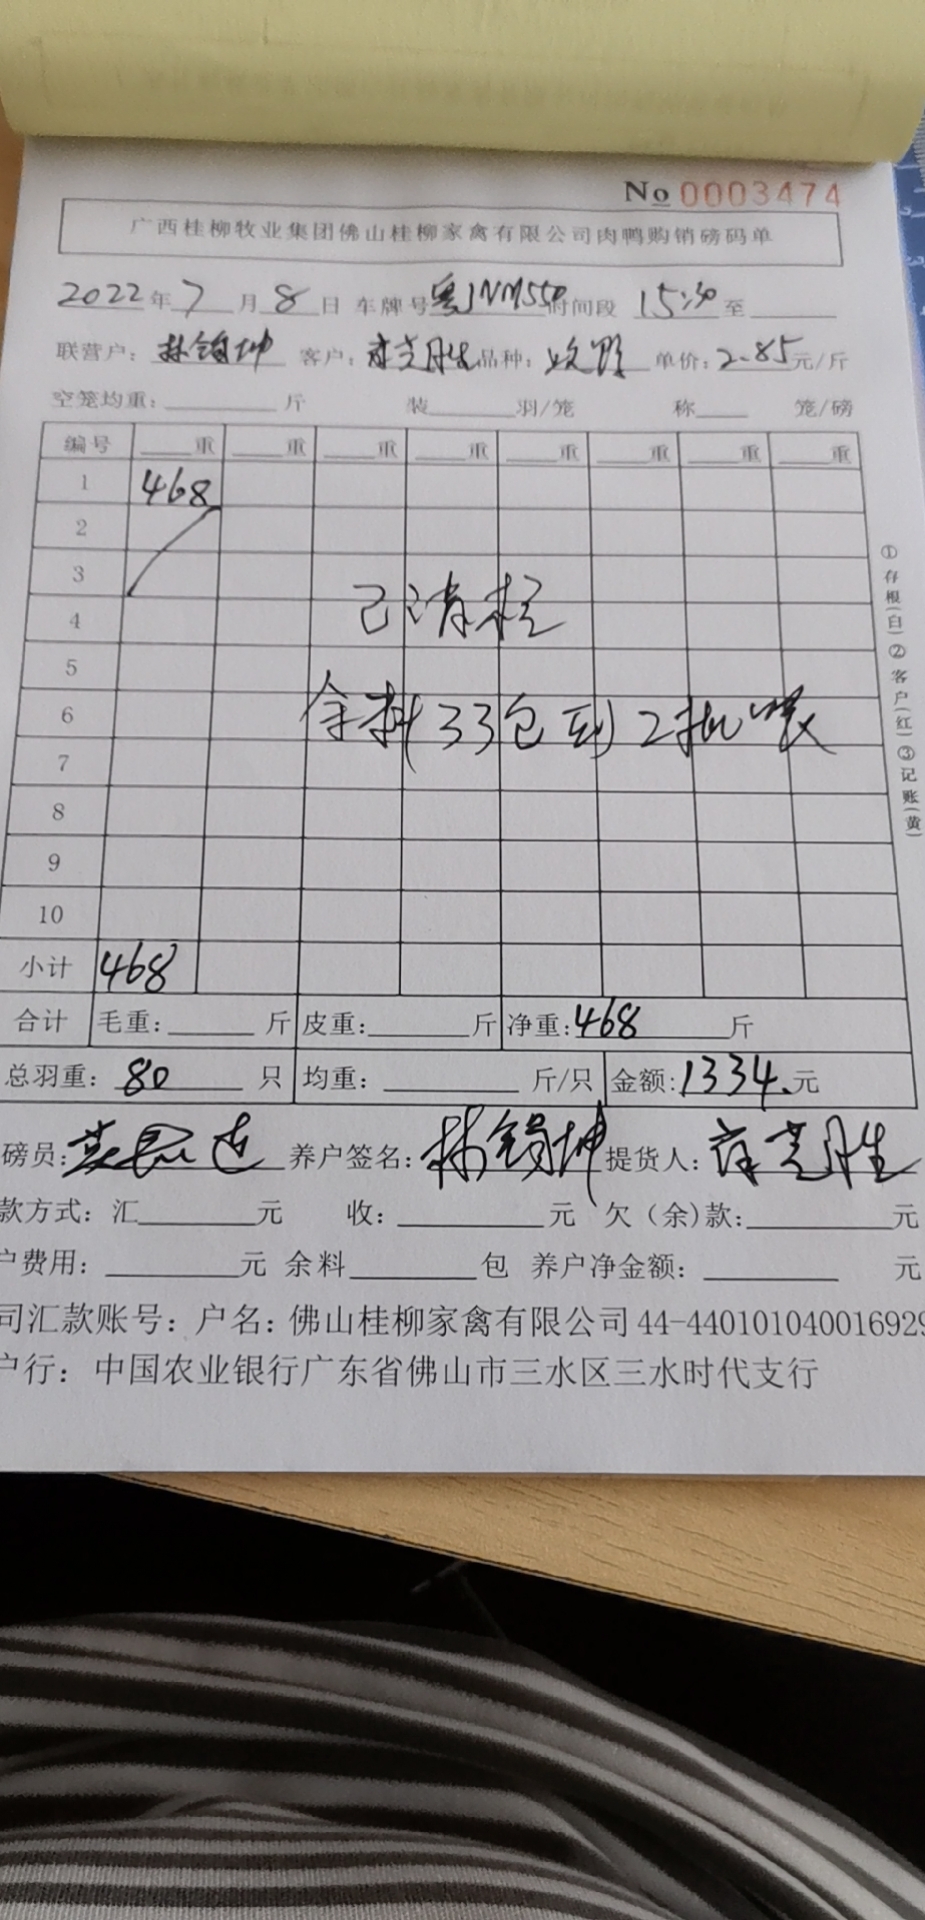 No 0003474
广西桂柳牧业集团佛山桂柳家禽有限公司肉鸭购销磅码单
2022年7月8日 车牌号粤JNM550时间段 15:30至
联营户: 林锡坤 客户: 胜 品种: 单价: 2.85元/斤
空笼均重: 斤 装 羽/笼 称 笼/磅
编号 重 重 重 重 重 重 重 重
1 468
2
3
4 已清栏
5
6 余料33包到2批喂
7
8
9
10
小计 468
合计 毛重: 斤 皮重: 斤 净重: 468 斤
总羽重: 80 只 均重: 斤/只 金额: 1334.元
磅员: 养户签名: 林锡坤 提货人: 胜
款方式: 汇 元 收: 元 欠(余)款: 元
户费用: 元 余料 包 养户净金额: 元
司汇款账号: 户名: 佛山桂柳家禽有限公司 44-440101040016929
户行: 中国农业银行广东省佛山市三水区三水时代支行
①存根(白)②客户(红)③记账(黄)